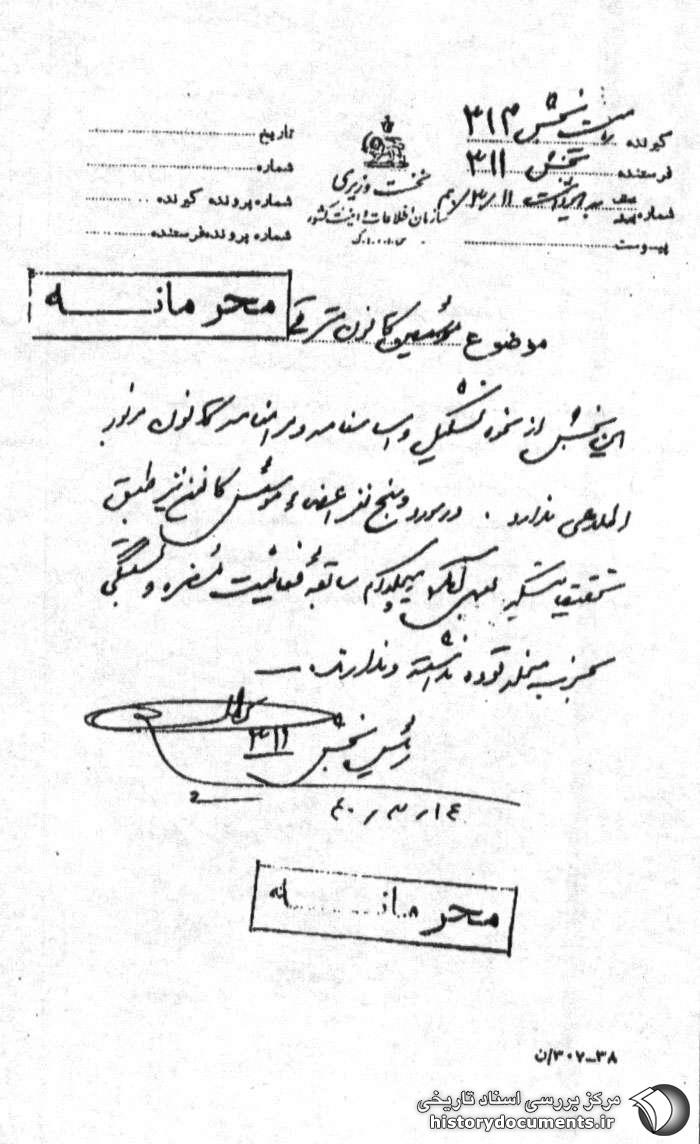 گیرنده ریاست بخش ۳۱۲
فرستنده بخش ۳۱۱
شماره
پیوست
نخست وزیری
سازمان اطلاعات و امنیت کشور
س.ا.و.ا.ک
تاریخ
شماره
شماره پرونده گیرنده
شماره پرونده فرستنده
محرمانه
موضوع مؤسسین کانون مترقی
این بخش از نحوه تشکیل و اساسنامه و مرامنامه کانون مزبور
اطلاعی ندارد. در مورد پنج نفر اعضاء مؤسس کانون نیز طبق
تحقیقات هیچکدام سابقه فعالیت مضره و بستگی
بحزب منحله توده نداشته و ندارند.
رئیس بخش ۳۱۱
۴۰/۳/۱۴
محرمانه
۳۰۷-۳۸/ن
مرکز بررسی اسناد تاریخی
historydocuments.ir